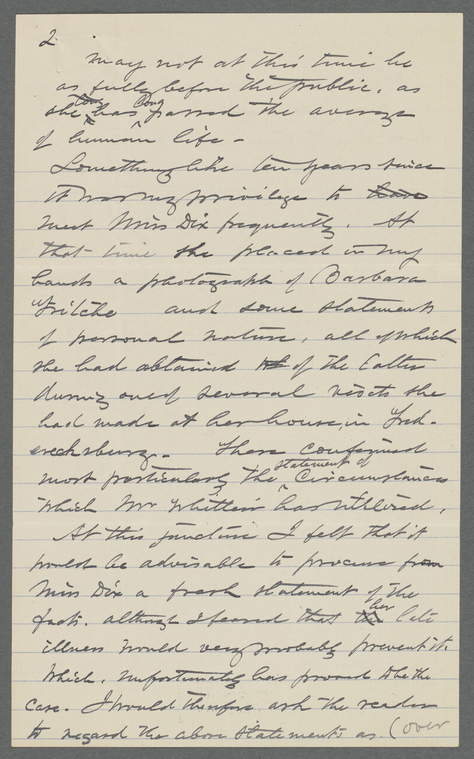 2
may not at this time be
as fully before the public, as
she has long passed the average
of human life -
Something like ten years since
it was my privilege to have
meet Miss Dix frequently. At
that time she placed in my
hands a photograph of Barbara
Fritche and some statements
of personal nature, all of which
she had obtained of the latter
during one of several visits she
had made at her house, in Fred-
ericksburg. These confirmed
most particularly the statement of circumstances
which Mr Whittier has utilized.
At this juncture I felt that it
would be advisable to procure from
Miss Dix a fresh statement of the
facts. although I feared that her late
illness would very probably prevent it.
Which, unfortunately has proved to be the
case. I would therefore ask the reader
to regard the above statements as (over